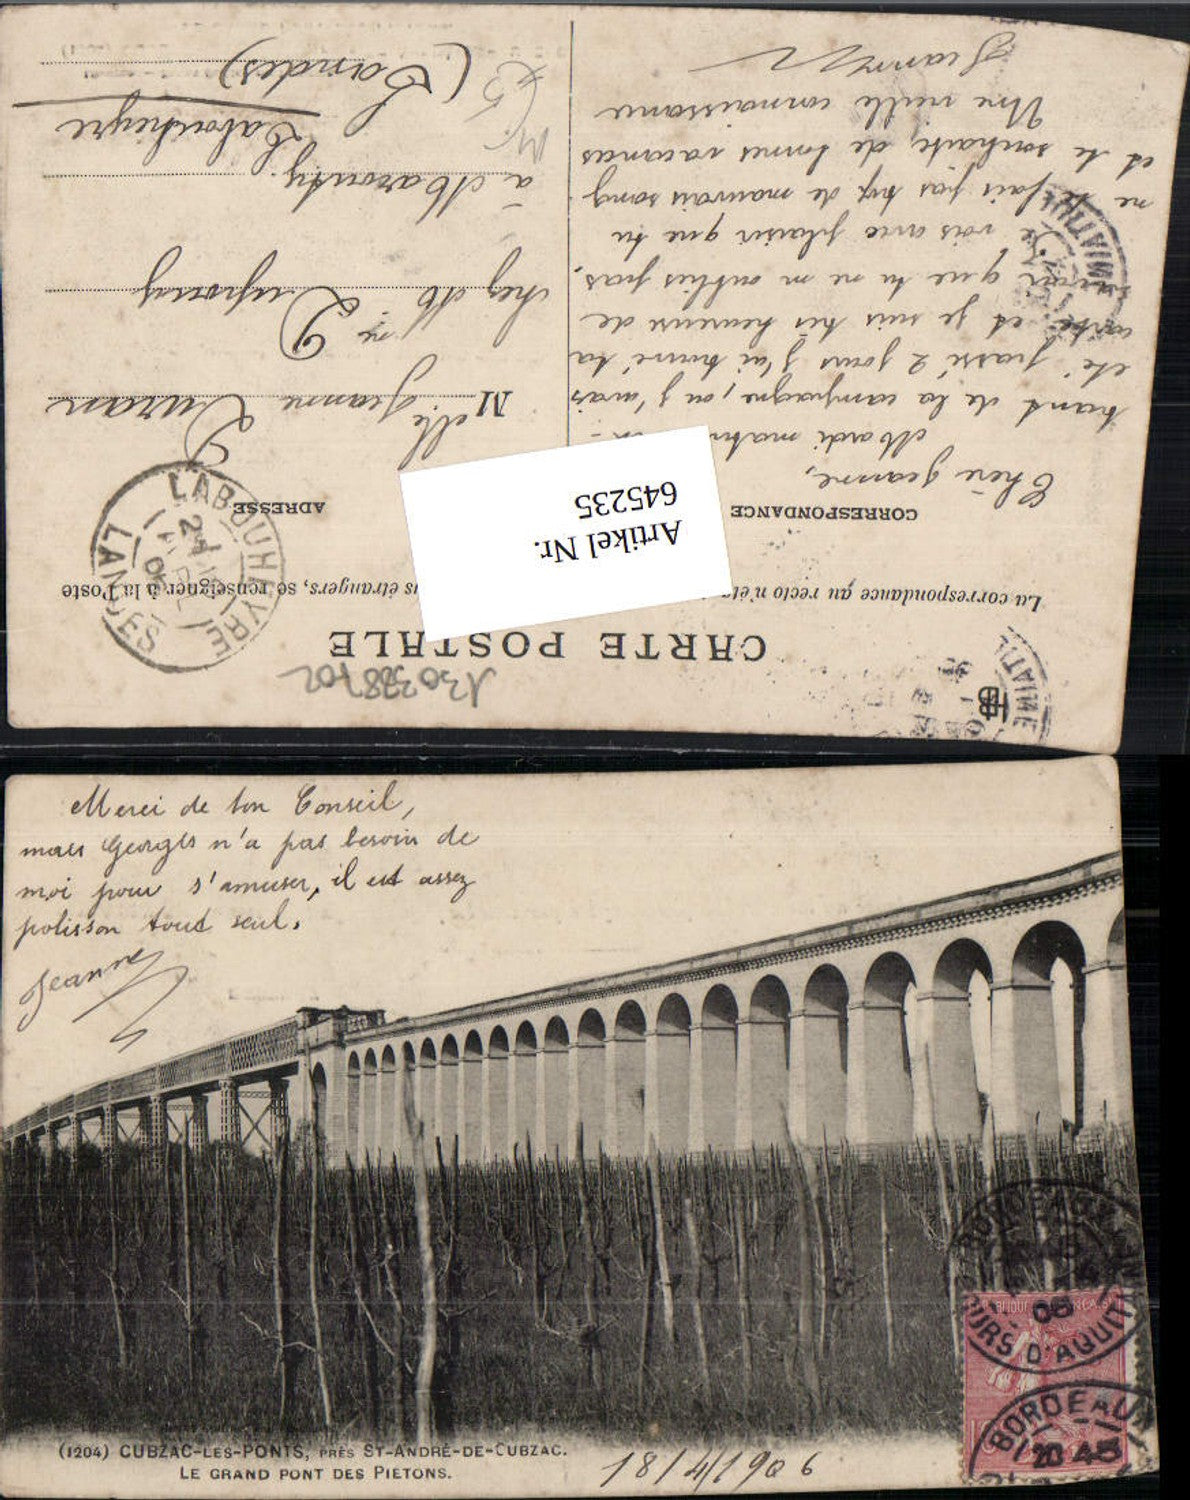 CARTE POSTALE
La correspondance au recto n'est
us étrangers, se renseigner à la Poste
CORRESPONDANCE
ADRESSE
Artikel Nr.
645235
Chère Jeanne,
Mardi matin
trant de la campagne, où j'avais
été passé 2 jours j'ai trouvé ta
carte et je suis très heureux de
que tu ne m'oublies pas.
Je vois avec plaisir que tu
ne te fais pas trop de mauvais sang
et te souhaite de bonnes vacances
Une vieille connaissance
Jeanne
Melle Jeanne Duran
chez Mr Dupouy
à Marouty.
Labouheyre
(Landes)
LABOUHEYRE
LANDES
130338702
Merci de ton Conseil,
mais Georges n'a pas besoin de
moi pour s'amuser, il est assez
polisson tout seul.
Jeanne
(1204) CUBZAC-LES-PONTS, PRÈS ST-ANDRÉ-DE-CUBZAC.
LE GRAND PONT DES PIÉTONS.
18/4/1906
BORDEAUX
COURS D'AQUITAINE
06
BORDEAUX